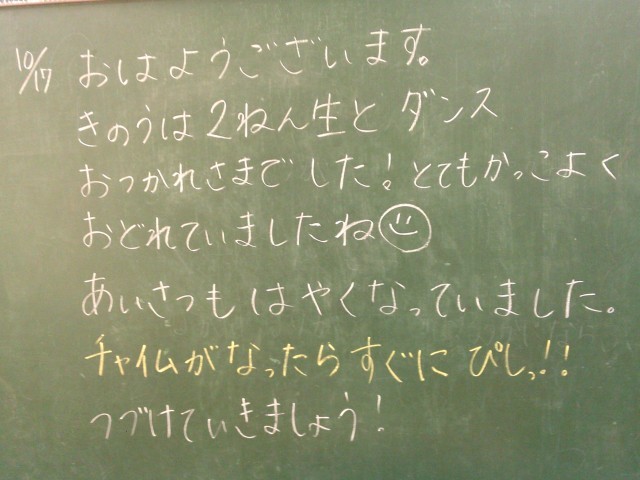 10/17 おはようございます。
きのうは2ねん生と ダンス
おつかれさまでした！とてもかっこよく
おどれていましたね
あいさつもはやくなっていました。
チャイムがなったらすぐに ぴしっ!!
つづけていきましょう！